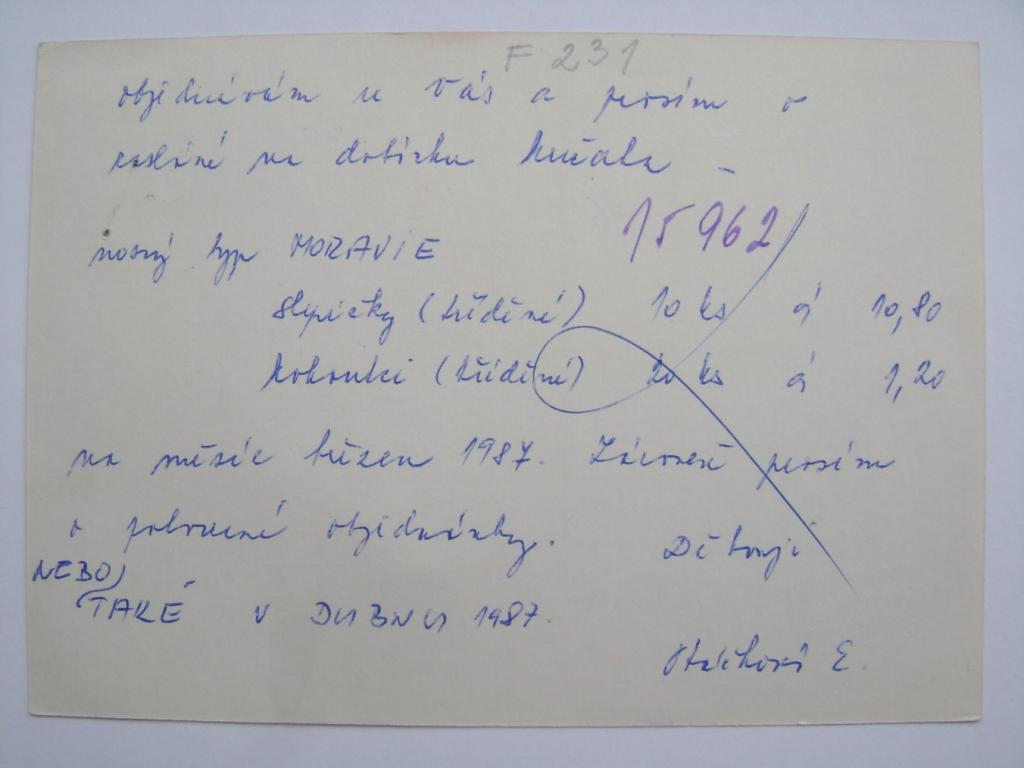 F 231
objednávám u Vás a prosím o
zaslání na dobírku kuřata –
15962
nosný typ MORAVIE
slepičky (tříděné) 10 ks á 10,80
kohoutci (tříděné) 20 ks á 1,20
na měsíc březen 1987. Zároveň prosím
o potvrzené objednávky.
Děkuji
NEBO
TAKÉ V DUBNU 1987.
E.